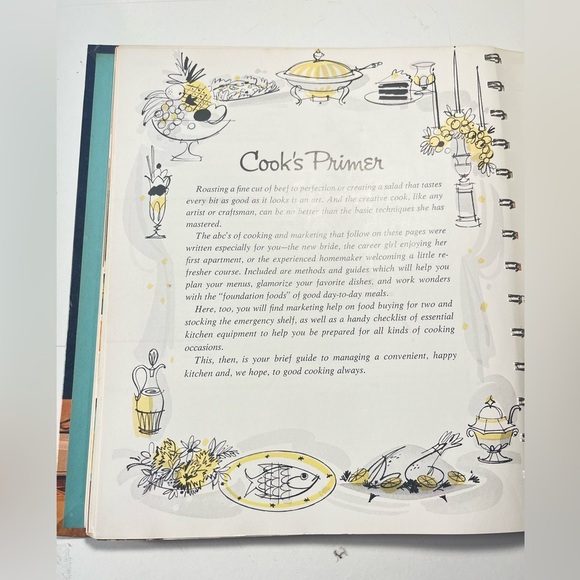 Cook's Primer
Roasting a fine cut of beef to perfection or creating a salad that tastes
every bit as good as it looks is an art. And the creative cook, like any
artist or craftsman, can be no better than the basic techniques she has
mastered.
The abc's of cooking and marketing that follow on these pages were
written especially for you—the new bride, the career girl enjoying her
first apartment, or the experienced homemaker welcoming a little re-
fresher course. Included are methods and guides which will help you
plan your menus, glamorize your favorite dishes, and work wonders
with the "foundation foods" of good day-to-day meals.
Here, too, you will find marketing help on food buying for two and
stocking the emergency shelf, as well as a handy checklist of essential
kitchen equipment to help you be prepared for all kinds of cooking
occasions.
This, then, is your brief guide to managing a convenient, happy
kitchen and, we hope, to good cooking always.